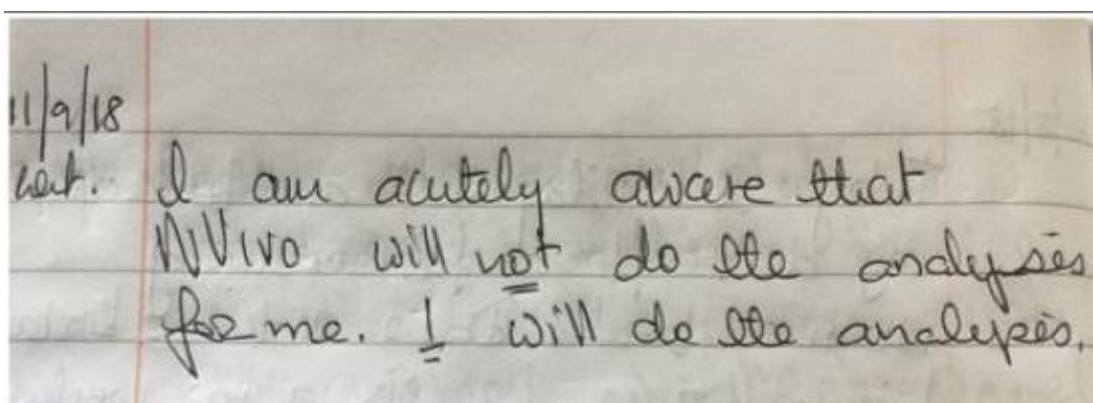 11/9/18
cont. I am acutely aware that
NVivo will not do the analysis
for me. I will do the analysis.